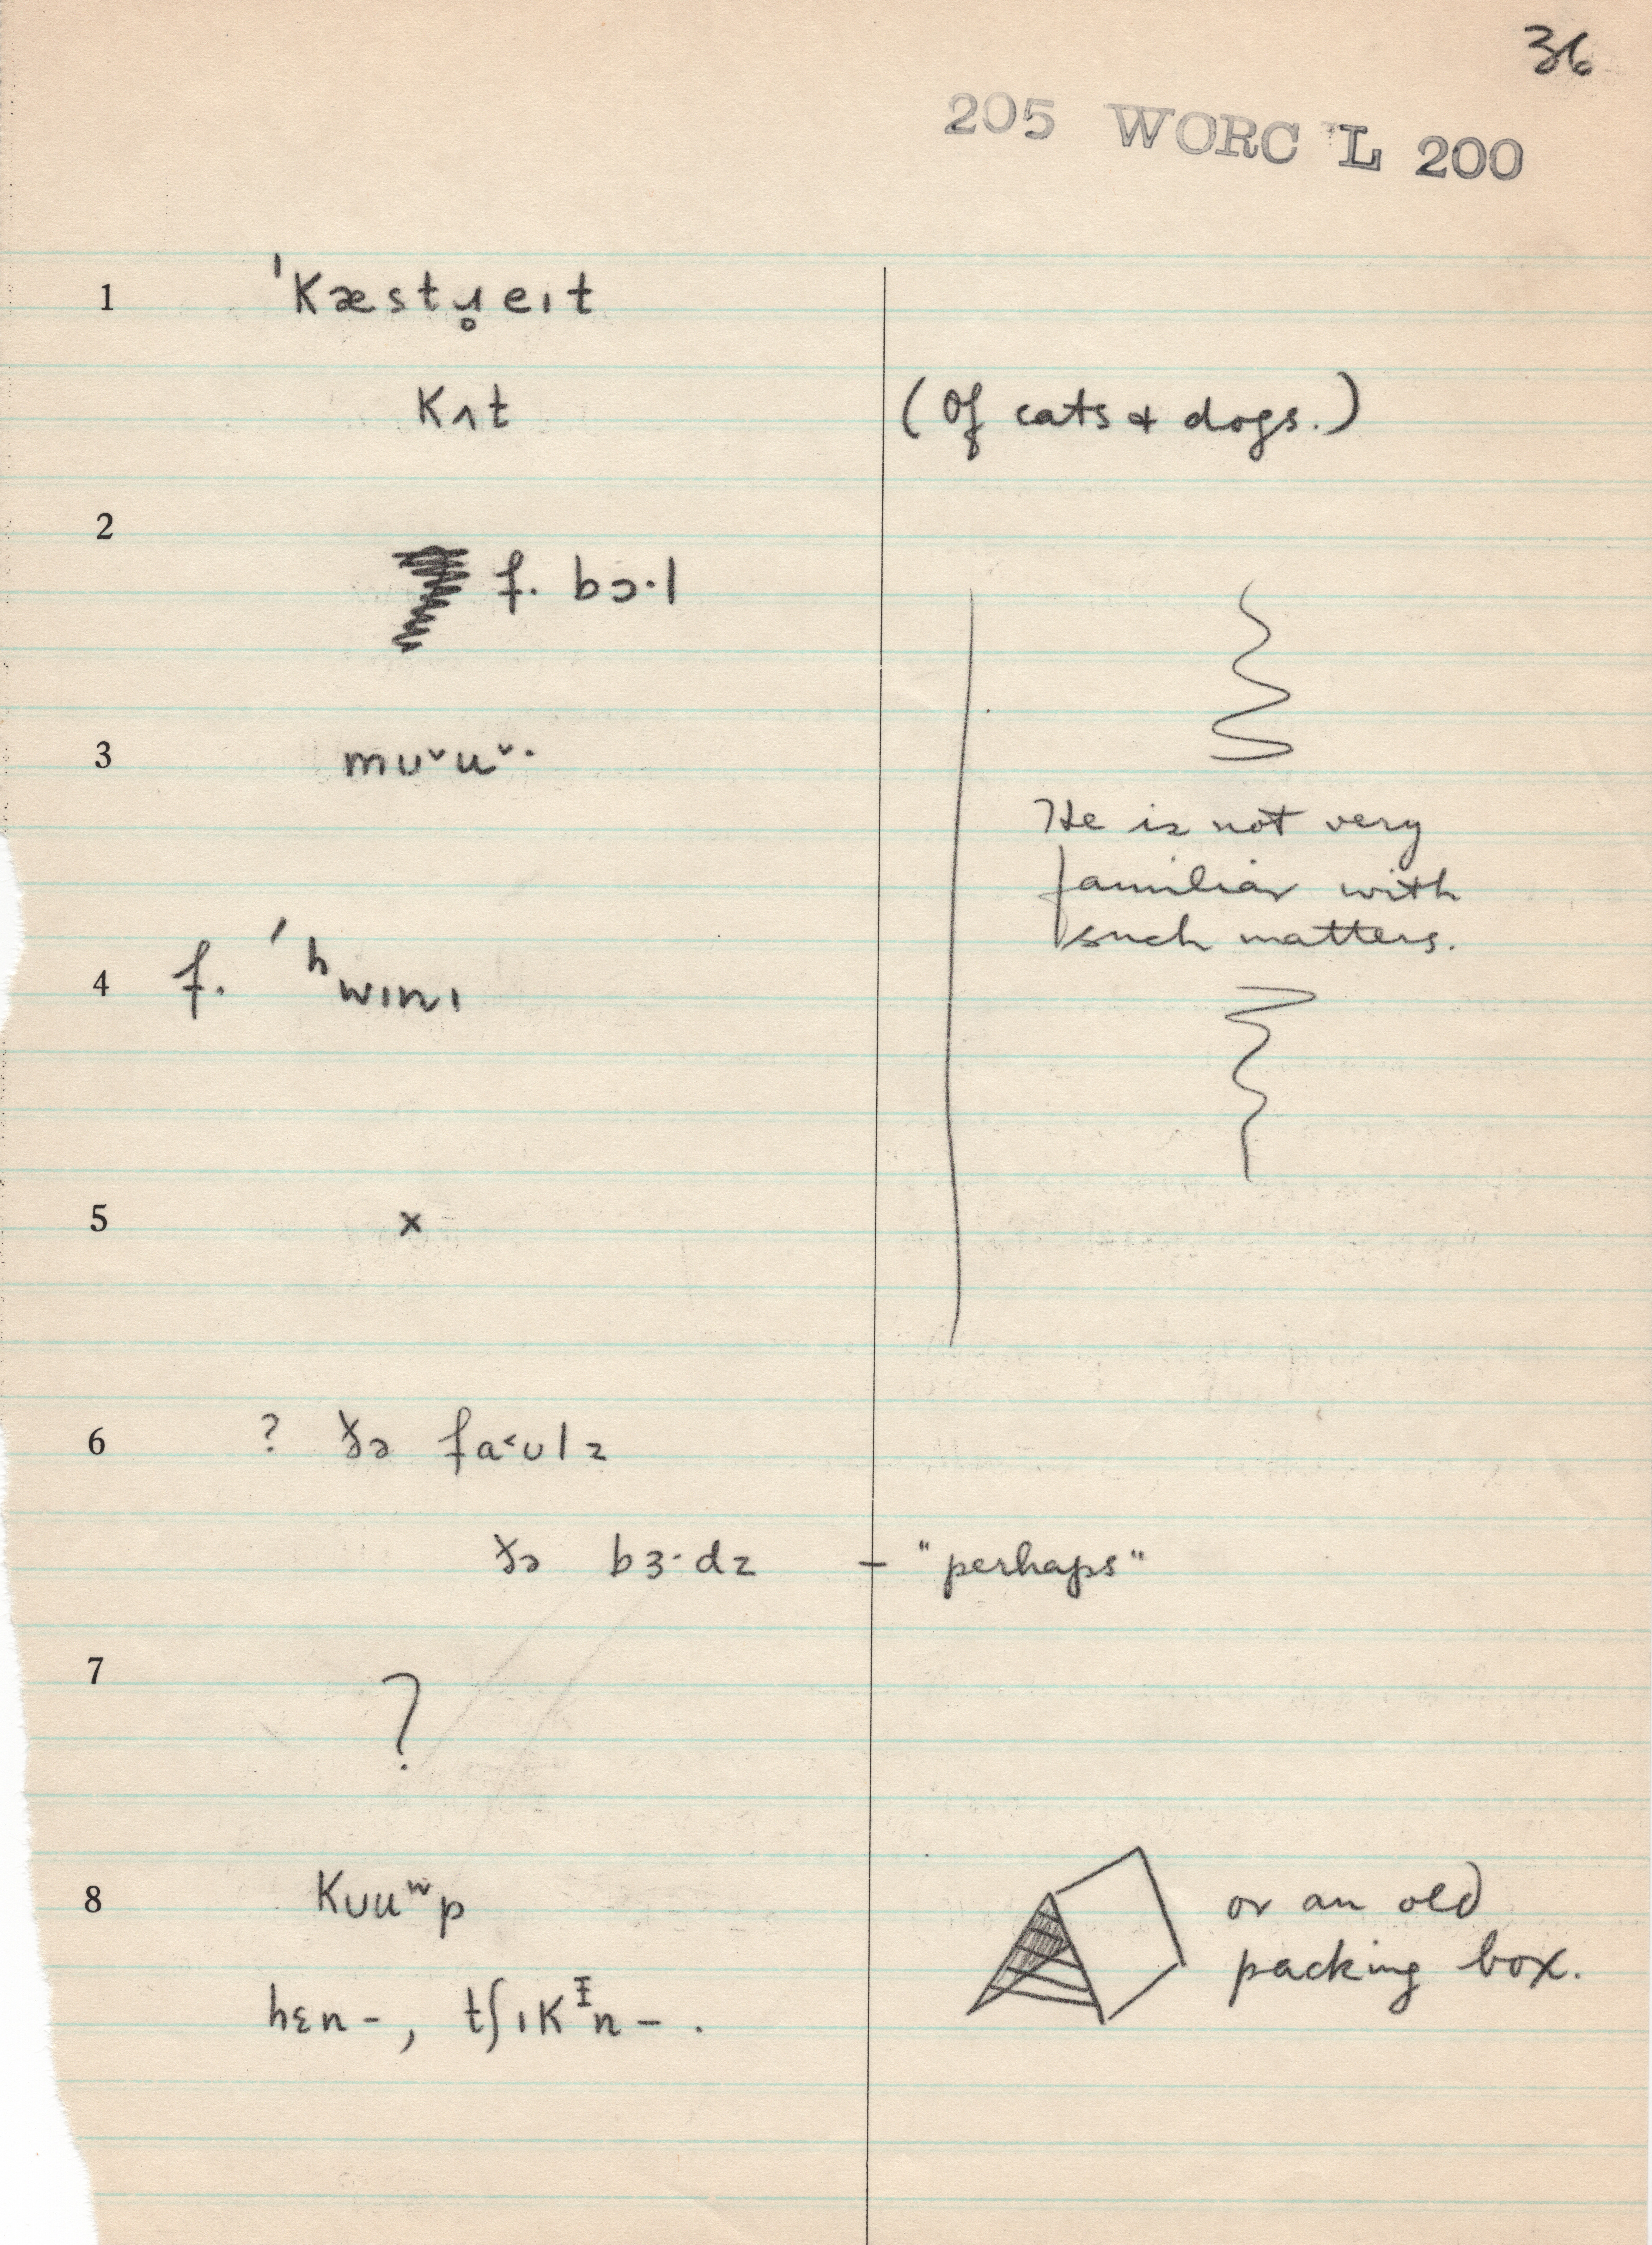 36
205 WORC L 200
1 ˈkæstɹ̥eɪt
kʌt (Of cats & dogs.)
2 f. bɔ·l
3 mʊ˅u˅·
He is not very
familiar with
such matters.
4 f. ˈʰwɪnɪ
5 x
6 ? ðə fa˂ʊlz
ðə bɜ·dz – "perhaps"
7 ?
8 kʊuʷp or an old
packing box.
hɛn-, tʃɪkᵻn-.